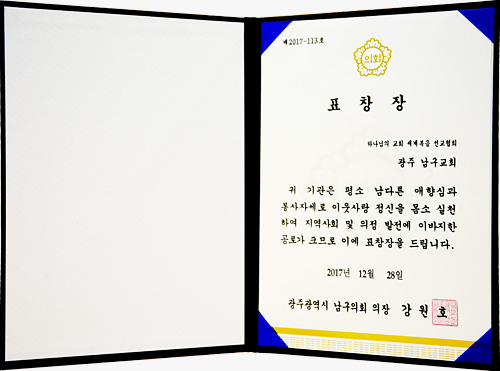 제 2017-113호
의회
표 창 장
하나님의 교회 세계복음 선교협회
광주 남구교회
귀 기관은 평소 남다른 애향심과
봉사자세로 이웃사랑 정신을 몸소 실천
하여 지역사회 및 의정 발전에 이바지한
공로가 크므로 이에 표창장을 드립니다.
2017년 12월 28일
광주광역시 남구의회 의장 강 원 호